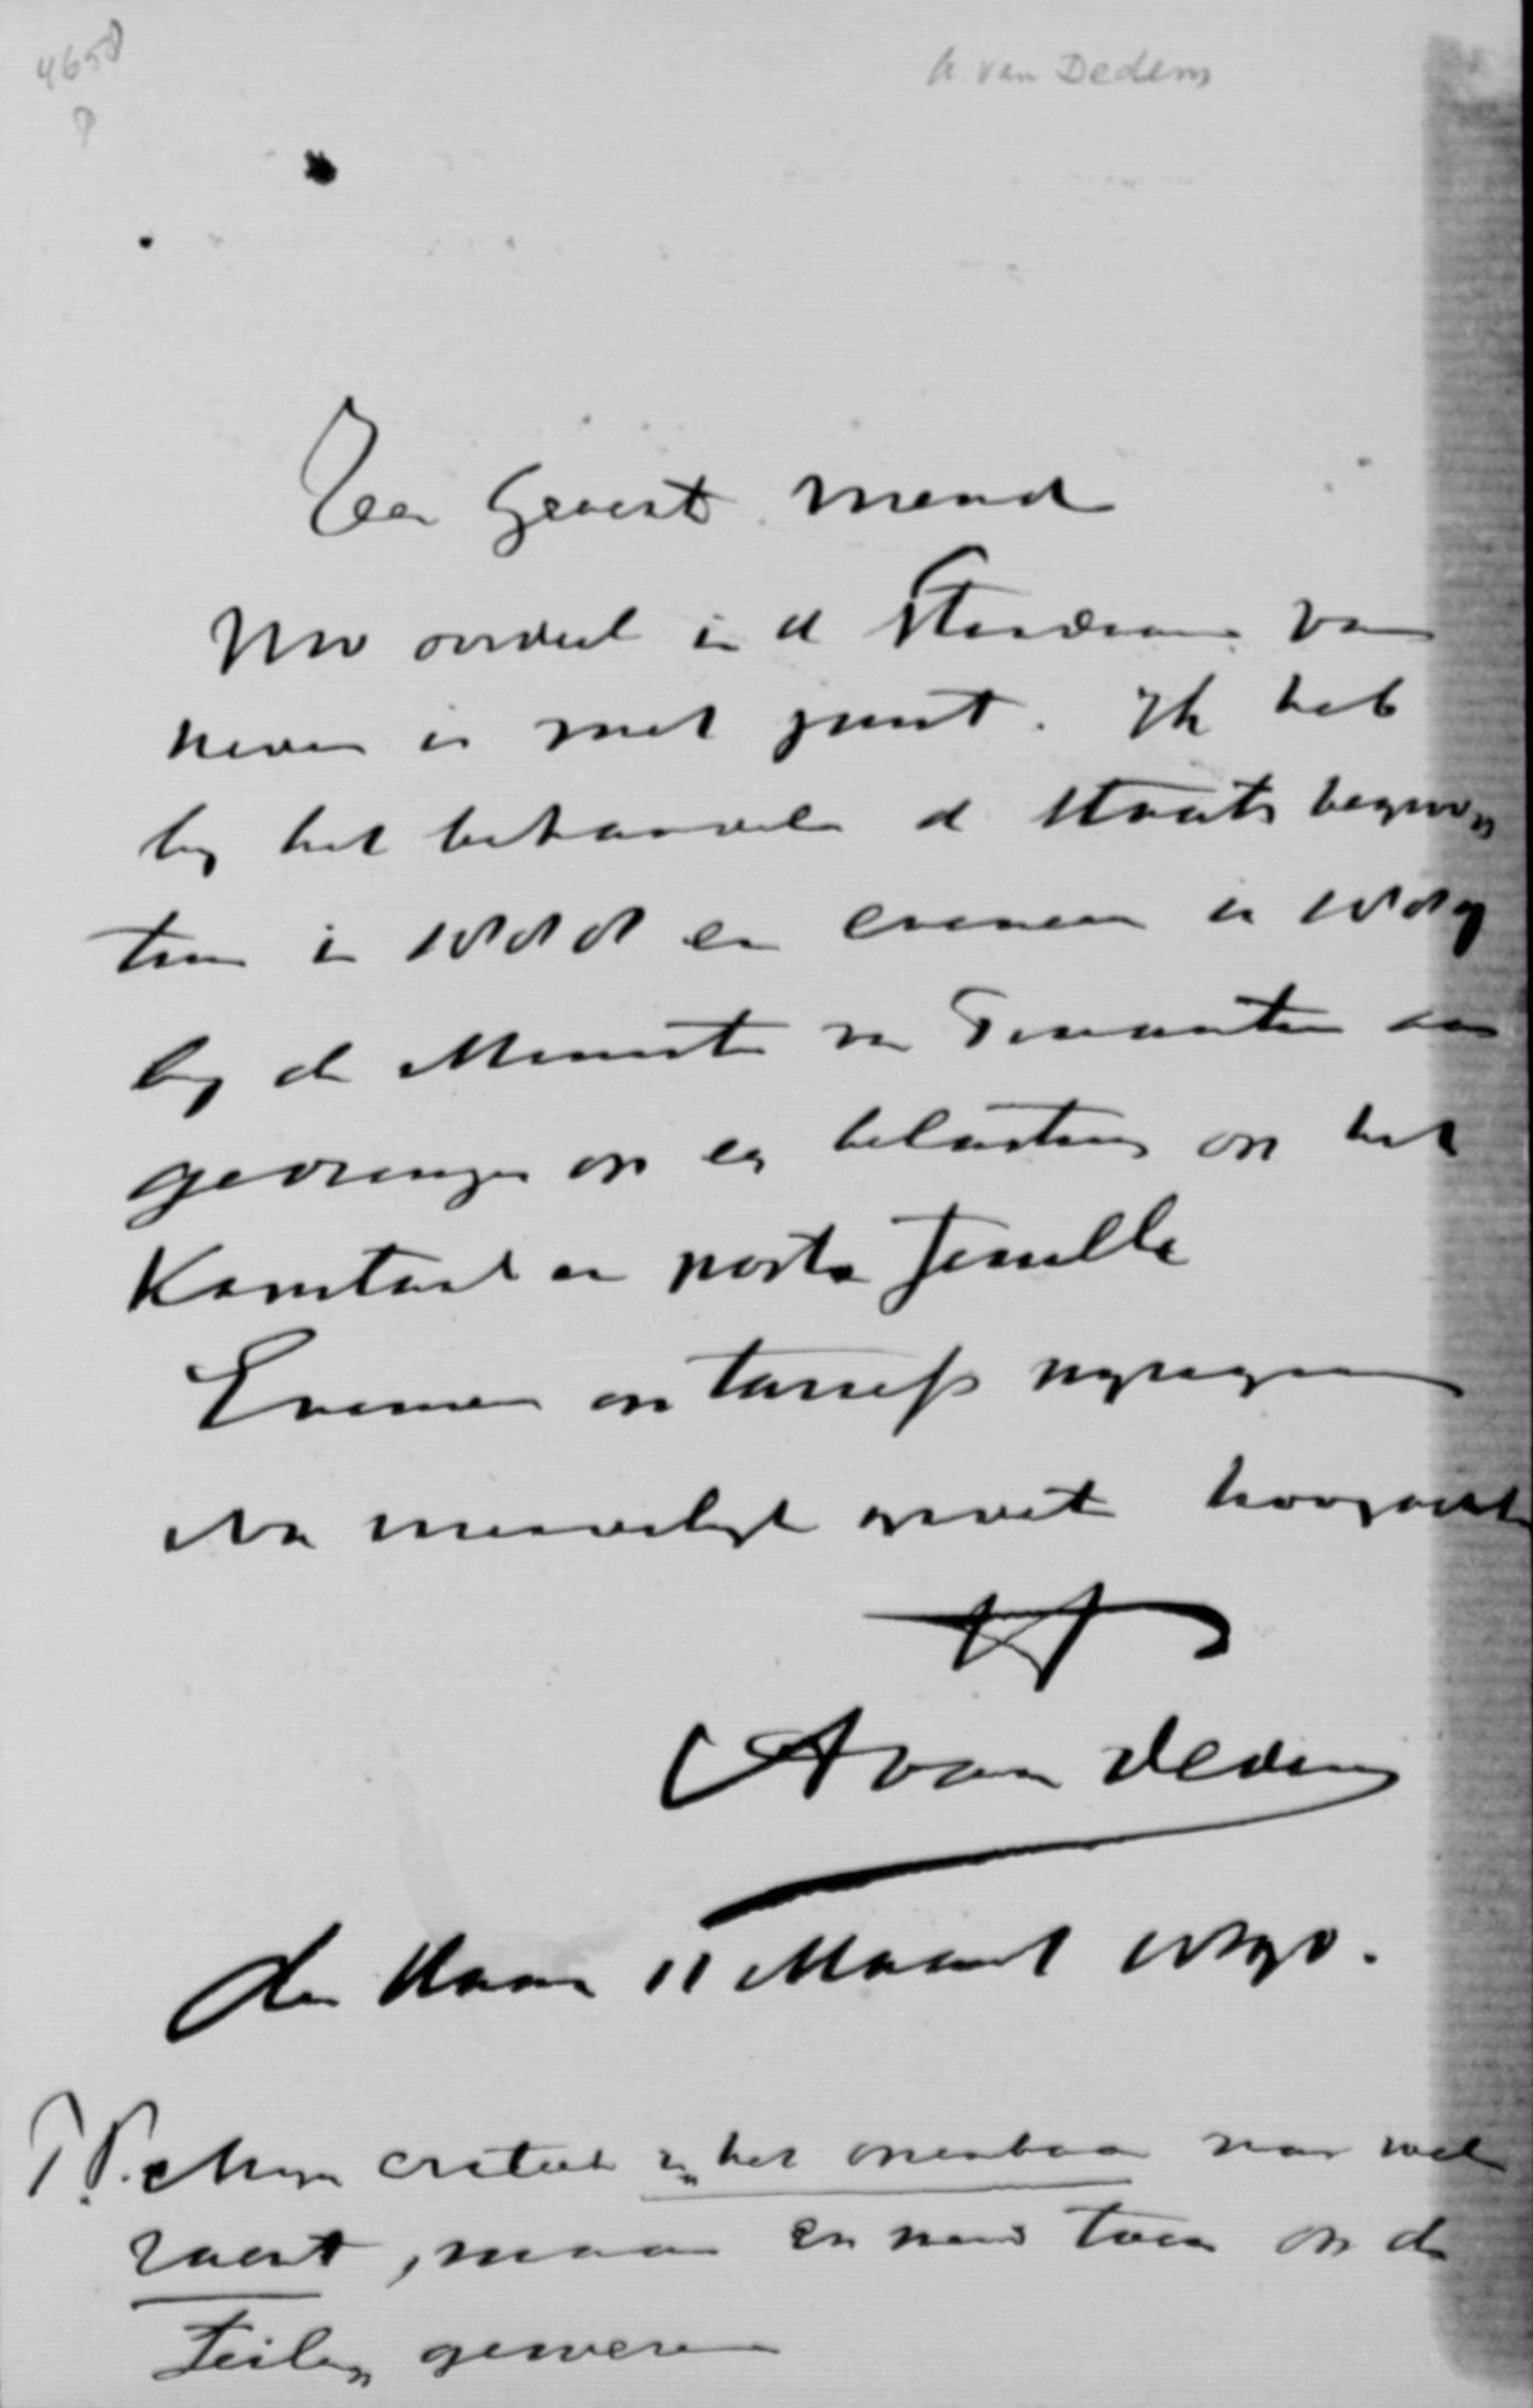 4658
A. van Dedem
Zeer Geacht
Uw oordeel in de Standaard van
heden is niet juist. Ik heb
bij het behandelen d Staats begroo
ten in 1888 en eveneen in 1889
bij de Minister van Financien aan
gedrongen op een belasting op het
Kapitaal en porte feuille
Eveneen op tariefs
Na meeste hoogacht
A van Dedem
den Haag 11 Maart 1890.
P.S. Mijn critiek in het openbaar was wel
zacht, maar en toen op de
Feilen gewezen